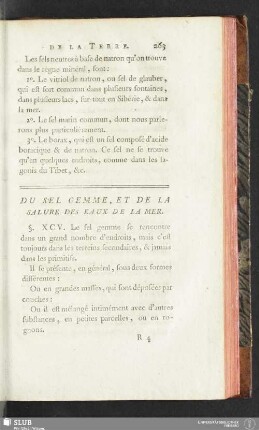 DE LA TERRE. 263
Les sels neutres à base de natron qu'on trouve
dans le règne minéral, sont:
1°. Le vitriol de natron, ou sel de glauber,
qui est fort commun dans plusieurs fontaines,
dans plusieurs lacs, sur-tout en Sibérie, & dans
la mer.
2°. Le sel marin commun, dont nous parle-
rons plus particulièrement.
3°. Le borax, qui est un sel composé d'acide
boracique & de natron. Ce sel ne se trouve
qu'en quelques endroits, comme dans les la-
gonis du Tibet, &c.
DU SEL GEMME, ET DE LA
SALURE DES EAUX DE LA MER.
§. XCV. Le sel gemme se rencontre
dans un grand nombre d'endroits, mais c'est
toujours dans les terreins secondaires, & jamais
dans les primitifs.
Il se présente, en général, sous deux formes
différentes:
Ou en grandes masses, qui sont déposées par
couches:
Ou il est mélangé intimément avec d'autres
substances, en petites parcelles, ou en ro-
gnons.
R 4
SLUB